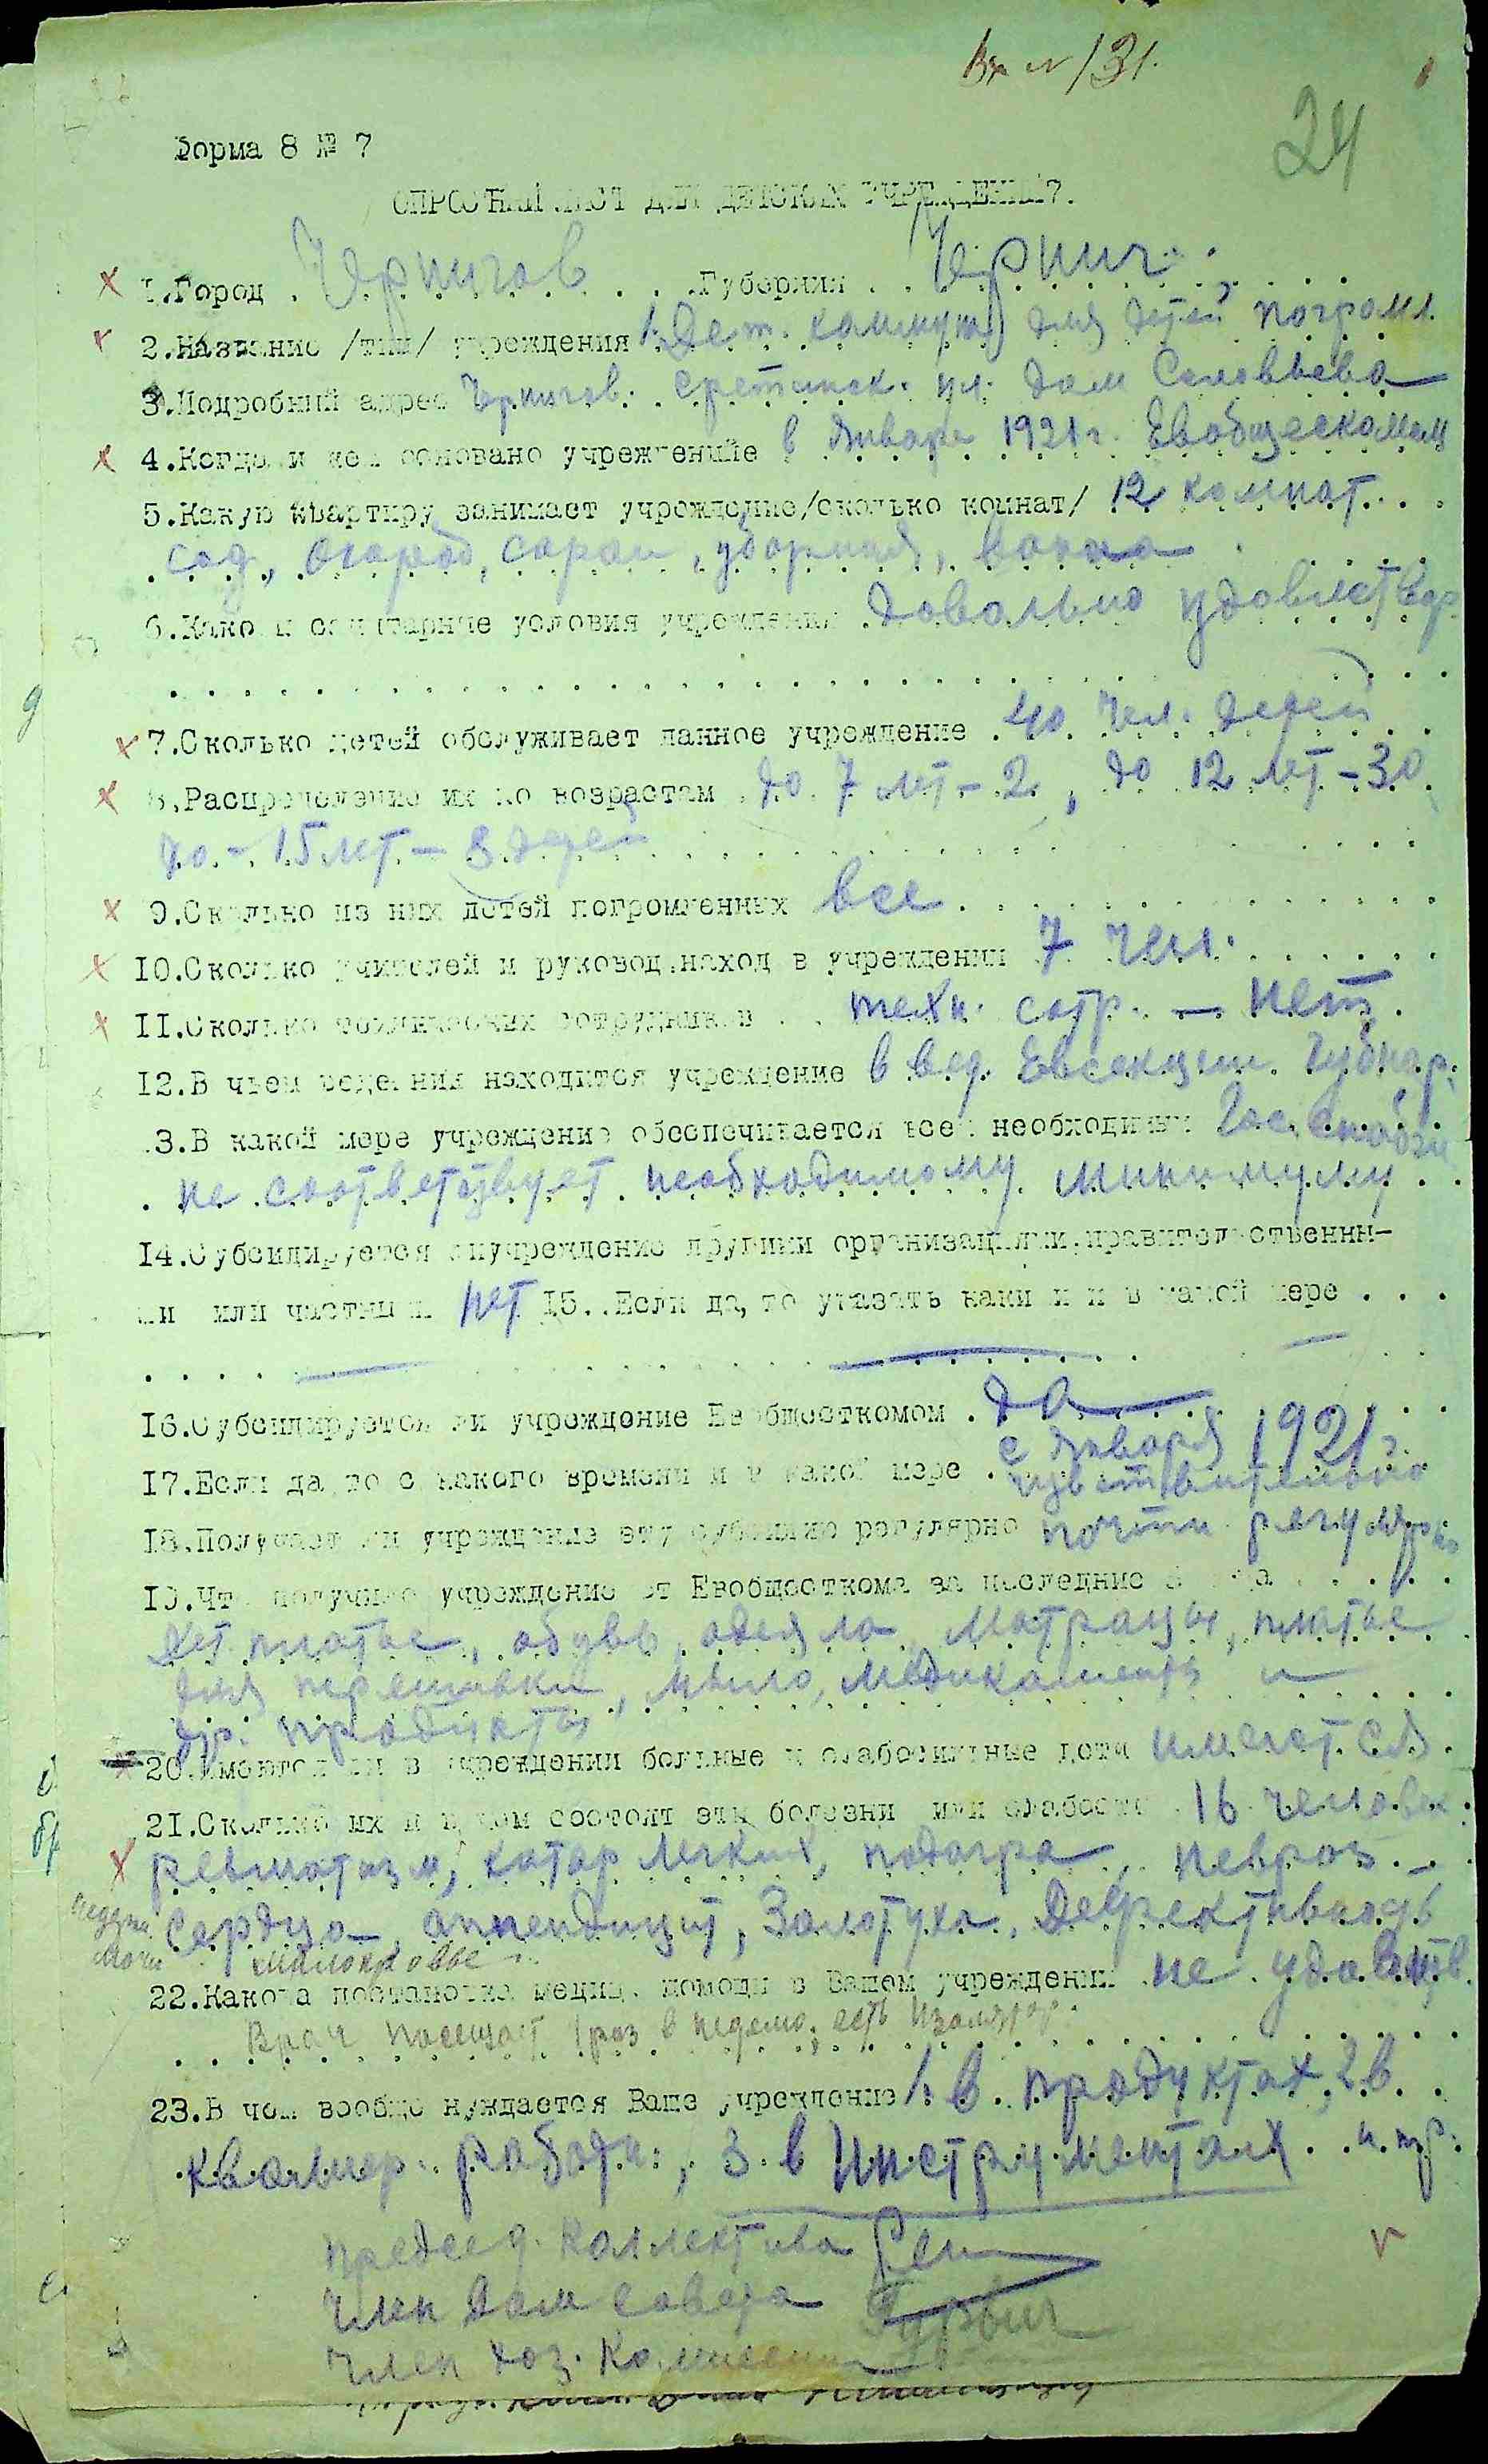 Вх № 131.
24
Форма 8 № 7
ОПРОСНЫЙ ЛИСТ ДЛЯ ДЕТСКИХ УЧРЕЖДЕНИЙ.
1.Город Чернигов Губерния Черниг.
2.Название /тип/ учреждения 1. Дет. коммуна для детей погромл.
3.Подробный адрес Чернигов. Сретинск. пл. дом Соловьева
4.Когда и кем основано учреждение в январе 1921 г. Евобщескомом
5.Какую квартиру занимает учреждение/сколько комнат/ 12 комнат.
сад, огород, сараи, уборная, ванна
6.Каковы санитарные условия учреждения Довольно удовлетвор.
7.Сколько детей обслуживает данное учреждение 40 чел. детей
8.Распределение их по возрастам до 7 лет - 2, до 12 лет - 30
до - 15 лет - 8 детей
9.Сколько из них детей погромленных все
10.Сколько учителей и руковод.наход в учреждении 7 чел.
11.Сколько технических сотрудников техн. сотр. — нет.
12.В чьем ведении находится учреждение в вед. Евсекции Губнар.
13.В какой мере учреждение обеспечивается всем необходимым Гос. снабж
не соответствует необходимому минимуму
14.Субсидируется учреждение другими организациями,правительственны-
ми или частными нет 15..Если да,то указать какими и в какой мере
16.Субсидируется ли учреждение Евобщесткомом да
с января 1921 г.
17.Если да то с какого времени и в какой мере чувствительно
18.Получает ли учреждение эту субсидию регулярно почти регулярно
19.Что получило учреждение от Евобщесткома за последние
Дет. платье, обувь, одеяла, матрацы, платье
для перешивки, мыло, медикаменты и
др. продукты
20.Имеются ли в учреждении больные и слабосильные дети имеются
21.Сколько их и в чем состоят эти болезни или слабости 16 человек.
ревматизм, катар легких, подагра, невроз
сердца, аппендицит, Золотуха, Дефективность
недерж. мочи малокровие
22.Какова постановка медиц. помощи в Вашем учреждении не удовлетв.
Врач посещает 1 раз в неделю, есть изолятор.
23.В чем вообще нуждается Ваше учреждение 1. в продуктах, 2 в
квалиф. работн., 3. в Инструментах и пр.
Председ. Коллектива
Член Дом Совета Гурвич
Член хоз. Комиссии